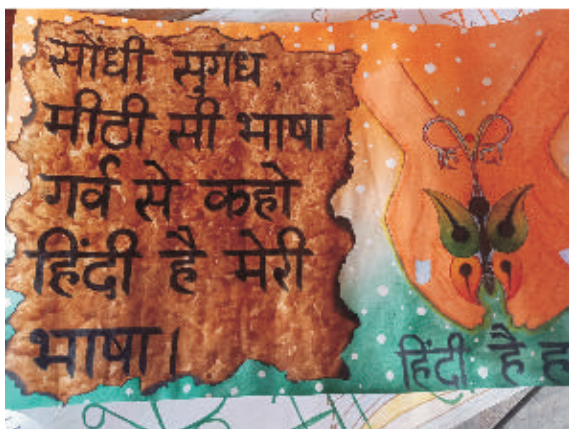 सोंधी सुगंध,
मीठी सी भाषा
गर्व से कहो
हिंदी है मेरी
भाषा।
हिंदी है